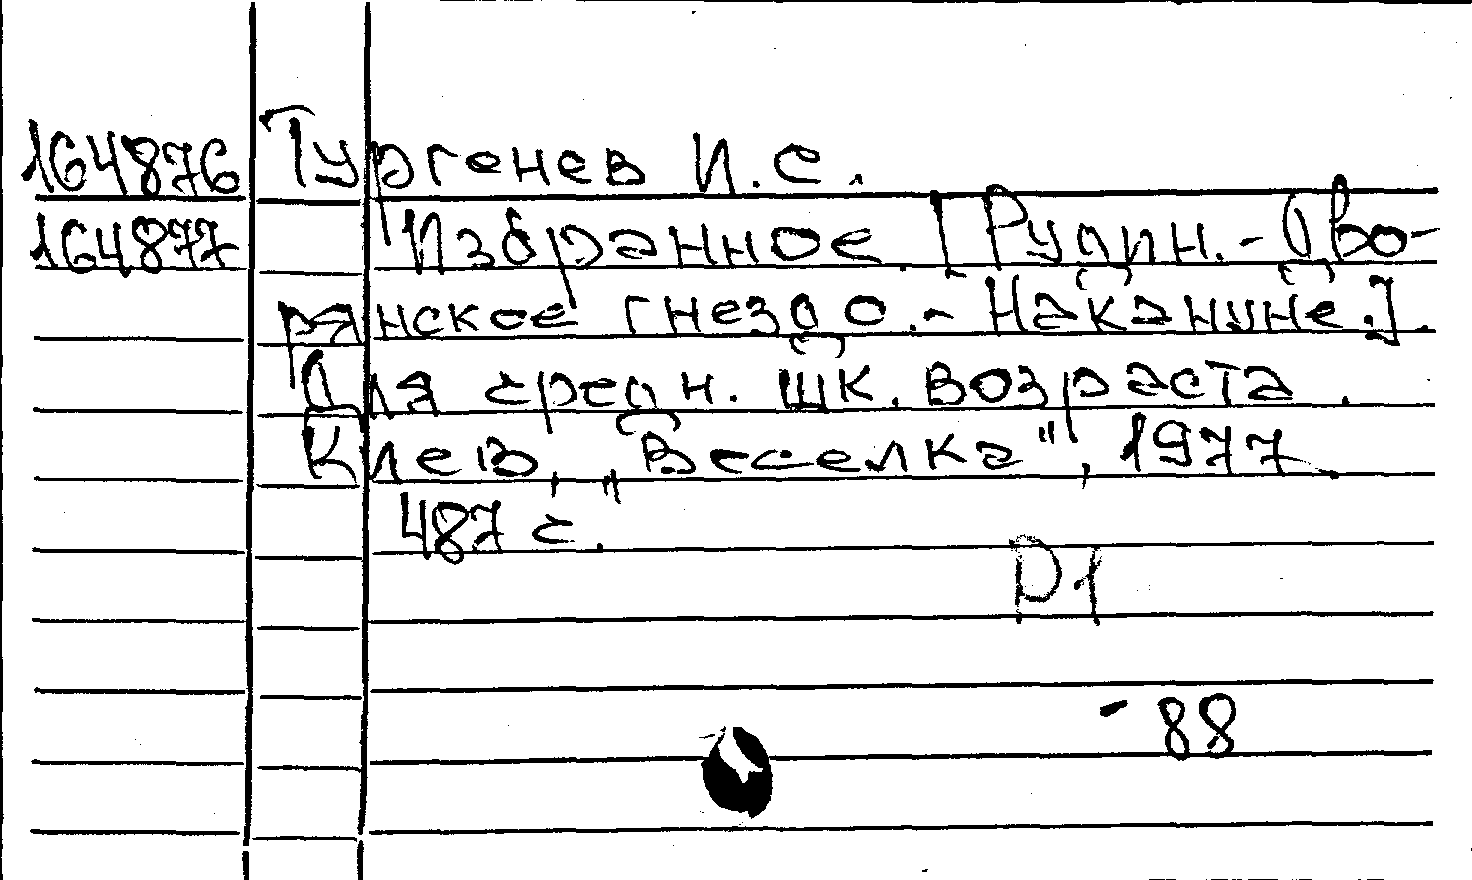 164876 Тургенев И. С.
164877 Избранное. [Рудин. - Дво-
рянское гнездо. - Накануне.].
Для средн. шк. возраста.
Киев, „Веселка", 1977.
487 с.
Р1
- 88